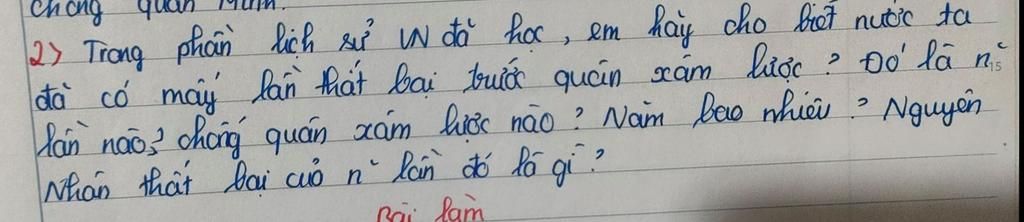 chống quân Minh.
2) Trong phần lịch sử VN đã học, em hãy cho biết nước ta
đã có mấy lần thất bại trước quân xâm lược? Đó là n~
lần nào? chống quân xâm lược nào? Năm bao nhiêu? Nguyên
Nhân thất bại của n~ lần đó là gì?
Bài làm